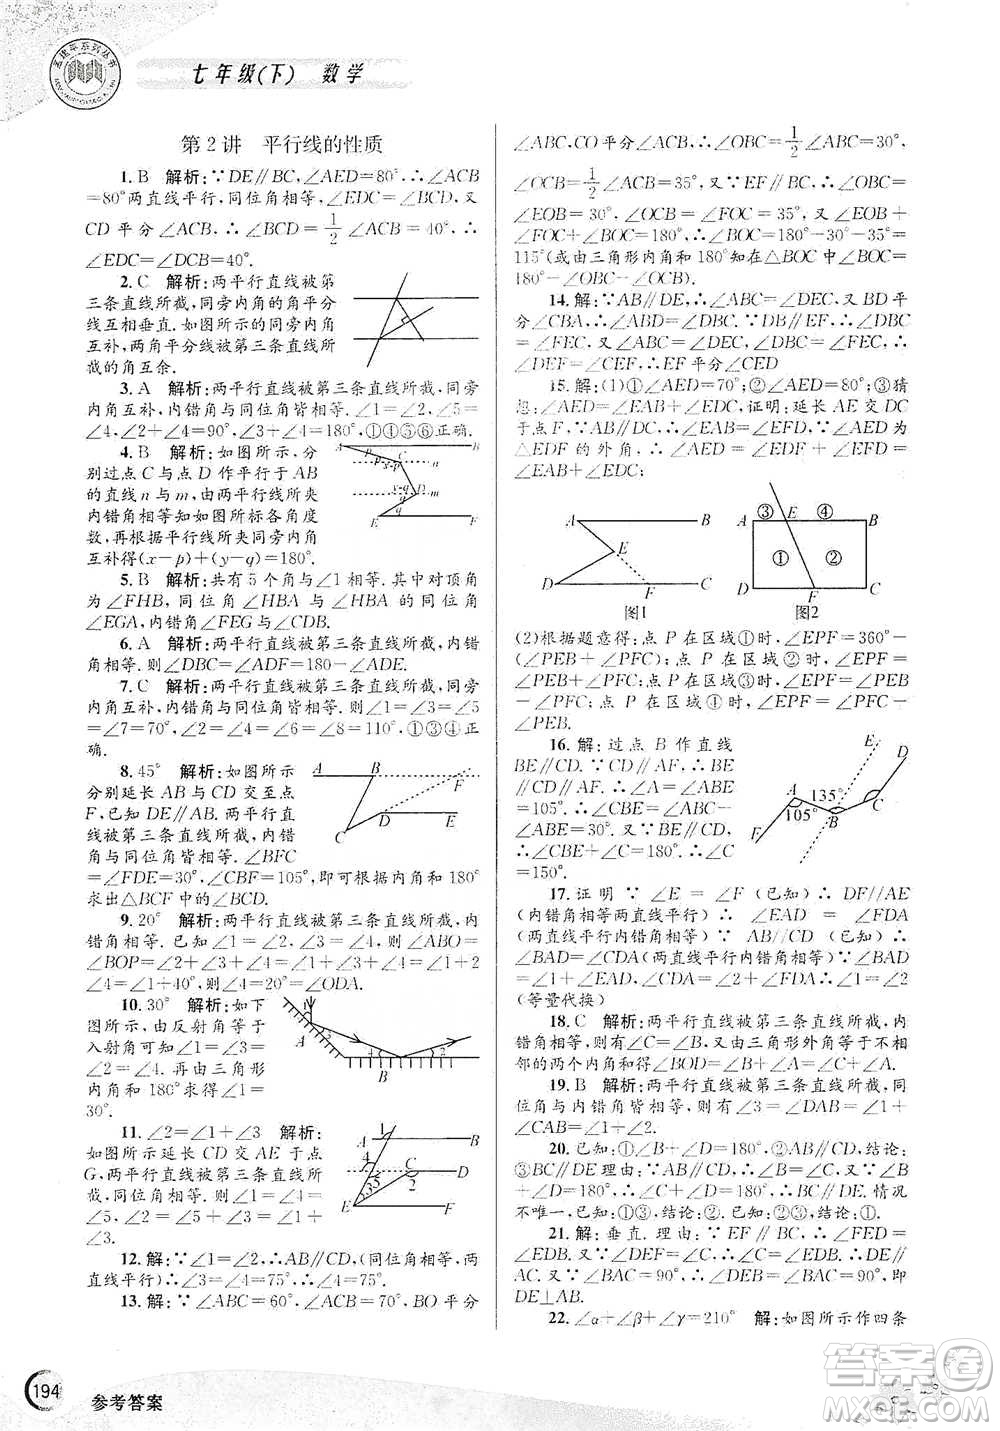 七年级(下) 数学
第2讲 平行线的性质
1. B 解析:∵DE∥BC,∠AED=80°,∴∠ACB
=80°两直线平行,同位角相等,∠EDC=∠BCD,又
CD平分∠ACB,∴∠BCD=1/2∠ACB=40°,∴
∠EDC=∠DCB=40°.
2. C 解析:两平行直线被第
三条直线所截,同旁内角的角平分
线互相垂直.如图所示的同旁内角
互补,两角平分线与第三条直线所
截的角互余.
3. A 解析:两平行直线被第三条直线所截,同旁
内角互补,内错角与同位角皆相等.∠1=∠2,∠5=
∠4,∠2+∠4=90°,∠4+∠3=180°,①④⑤⑥正确.
4. B 解析:如图所示,分
别过点C与点D作平行于AB
的直线n与m,由两平行线所夹
内错角相等知如图所标各角度
数,再根据平行线所夹同旁内角
互补得(x-p)+(y-q)=180°.
5. B 解析:共有5个角与∠1相等.其中对顶角
为∠FHB,同位角∠HBA与∠HBA的同位角
∠EGA,内错角∠FEG与∠CDB.
6. A 解析:两平行直线被第三条直线所截,内错
角相等.则∠DBC=∠ADB=180-∠ADE.
7. C 解析:两平行直线被第三条直线所截,同位
角相等、内错角相等.则∠1=∠2=∠3=∠5=110°,
∠7=70°,∠2=∠8=110°,∠3=∠7,①③④正
确.
8. 45° 解析:如图所示
分别延长AB与CD交至点
F,已知DE∥AB.两平行直线
被第三条直线所截,内错
角与同位角皆相等.∠BFC
=∠FDE=30°,∠CBF=105°,即可求内角和为180°
的△BCF中的∠BCD.
9. 20° 解析:两平行直线被第三条直线所截,内
错角相等.已知∠1=∠2,∠3=∠4,则∠ABO=
∠BOP=∠2+∠3+∠4=∠1+∠3+∠4=∠1+2
∠4=60°,则∠4=20°=∠ODA.
10. 30° 解析:如下
图所示,由反射角等于
入射角可知∠1=∠3=
∠4=∠2.再由三角形
内角和180°求得∠1=
30°.
11. ∠2=∠1+∠3 解析:
如图所示延长CD交AE于点
G,两平行直线被第三条直线所
截,同位角相等.∠1=∠4=∠5
=180°-∠ECG-∠3=∠2-
∠3.
12. 解:∵∠1=∠2,∴AB∥CD,(同位角相等,两
直线平行)∴∠3=∠4=75°
13. 解:∵∠ABC=60°,∠ACB=70°,BO平分
∠ABC,CO平分∠ACB,∴∠OBC=1/2∠ABC=30°,
∠OCB=1/2∠ACB=35°,又∵EF∥BC,∴∠OBC=
∠EOB=30°,∠OCB=∠FOC=35°,又∠EOB+
∠FOC+∠BOC=180°,∴∠BOC=180°-30°-35°=
115°(或由三角形内角和180°知在△BOC中∠BOC=
180°-∠OBC-∠OCB)
14. 解:∵AB∥DE,∴∠ABC=∠DEC,又BD平
分∠CBA,∴∠ABD=∠DBC.∵DB∥EF,∴∠DBC=
∠FEC,又∠ABC=∠DEC,∠ABD=∠DBC,∴
∠DEF=∠CEF,∴EF平分∠CED
15. 解:(1)①∠AED=70°;②∠AED=80°;③猜
想:∠AED=∠EAB+∠EDC,证明:延长AE交DC
于点F,∵AB∥DC,∴∠EAB=∠EFD,∵∠AED为
△EDF的外角,∴∠AED=∠EDF+∠EFD=
∠EAB+∠EDC;
图1 图2
(2)根据题意得:点P在区域①时,∠EPF=360°-
(∠PEB+∠PFC);点P在区域②时,∠EPF=
∠PEB+∠PFC;点P在区域③时,∠EPF=
∠PEB-∠PFC;点P在区域④时,∠EPF=∠PFC-
∠PEB.
16. 解:过点B作直线
BE∥CD.∵CD∥AF,∴BE
∥CD∥AF.∴∠A=∠ABE
=105°.∴∠CBE=∠ABC-
∠ABE=30°.又∵BE∥CD,
∴∠CBE+∠C=180°.∴∠C
=150°.
17. 证明∵∠E=∠F(已知)∴DF//AE
(内错角相等两直线平行)∴∠EAD=∠FDA
(两直线平行内错角相等)∵AB//CD(已知)∴
∠BAD=∠CDA(两直线平行内错角相等)∵∠BAD
=∠1+∠EAD,∠CDA=∠2+∠FDA∴∠1=∠2
(等量代换)
18. C 解析:两平行直线被第三条直线所截,内
错角相等.∠C=∠ABC,由三角形外角等于不相
邻的两个内角和得∠BOD=∠ABC+∠A=∠C+∠A.
19. B 解析:两平行直线被第三条直线所截,同
位角与内错角皆相等.则∠2=∠3=∠DAB=∠1+
∠CAB=∠1+∠ABC.
20. 已知:①∠B+∠D=180°,②AB∥CD,结论:
③BC∥DE理由:∵AB∥CD,∴∠B=∠C,又∵∠B
+∠D=180°,∴∠C+∠D=180°,∴BC∥DE.情况
不唯一,已知:①③,结论:②.已知:②③,结论:①.
21. 解:垂直.理由:∵EF∥BC,∴∠FED=
∠EDB,又∵∠DEF=∠C,∴∠EDB=∠C.∴DE∥
AC.又∵∠BAC=90°,∴∠BED=∠BAC=90°,即
DE⊥AB.
22. ∠α+∠β+∠γ=210° 解:如图所示作四条
194 参考答案
答案圈